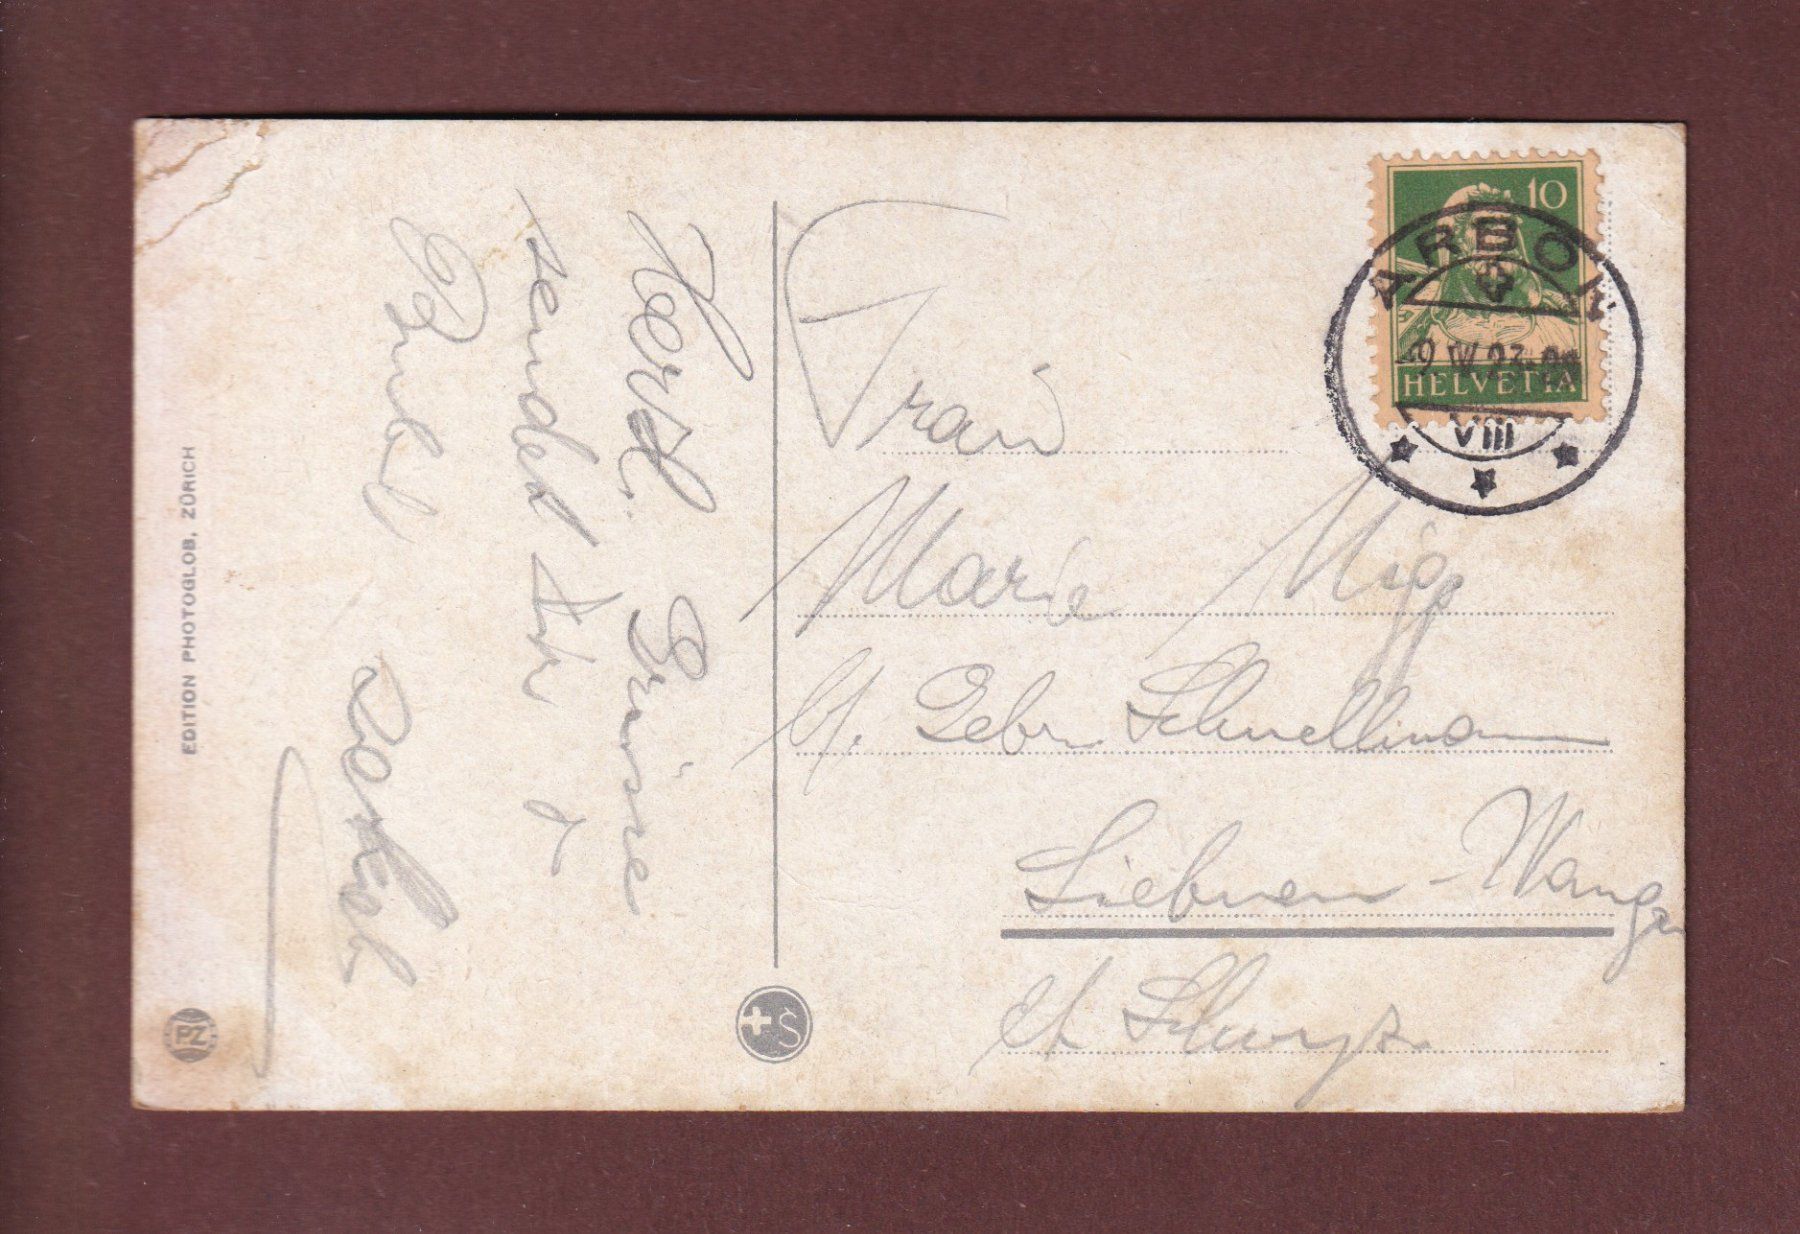 Herzl. Grüsse
sendet Dir
10
ARBON
-9.IV.23.
HELVETIA
VIII
Frau
Marie
Gebr. Schnellmann
Siebnen-Wangen
Kt. Schwyz.
EDITION PHOTOGLOB, ZÜRICH
PZ
S